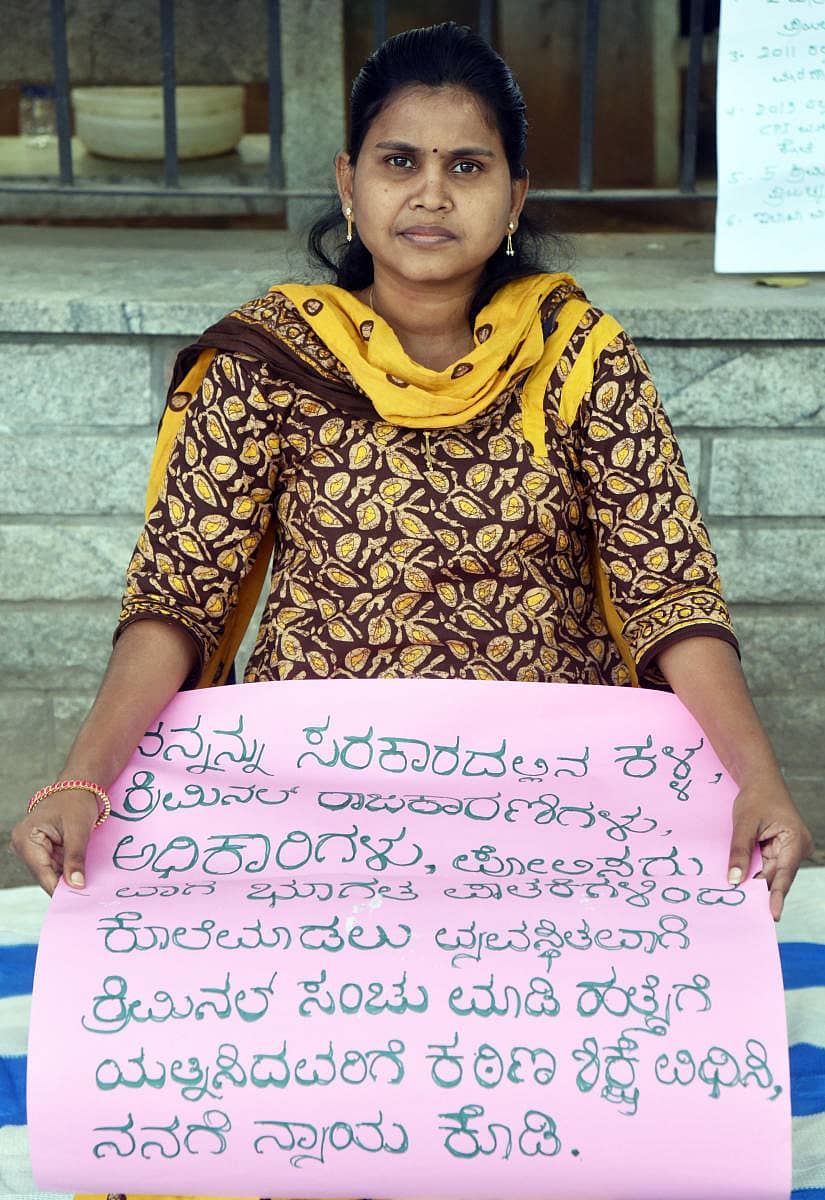 3. 2011
4. 2019
CPI
5. 5
6.
ನನ್ನನ್ನು ಸರಕಾರದಲ್ಲಿನ ಕಳ್ಳ,
ಕ್ರಿಮಿನಲ್ ರಾಜಕಾರಣಿಗಳು,
ಅಧಿಕಾರಿಗಳು, ಪೋಲಿಸರು
ಭೂಗತ ಪಾತಕಿಗಳಿಂದ
ಕೊಲೆಮಾಡಲು ವ್ಯವಸ್ಥಿತವಾಗಿ
ಕ್ರಿಮಿನಲ್ ಸಂಚು ಮಾಡಿ ಹತ್ಯೆಗೆ
ಯತ್ನಿಸಿದವರಿಗೆ ಕಠಿಣ ಶಿಕ್ಷೆ ವಿಧಿಸಿ,
ನನಗೆ ನ್ಯಾಯ ಕೊಡಿ.